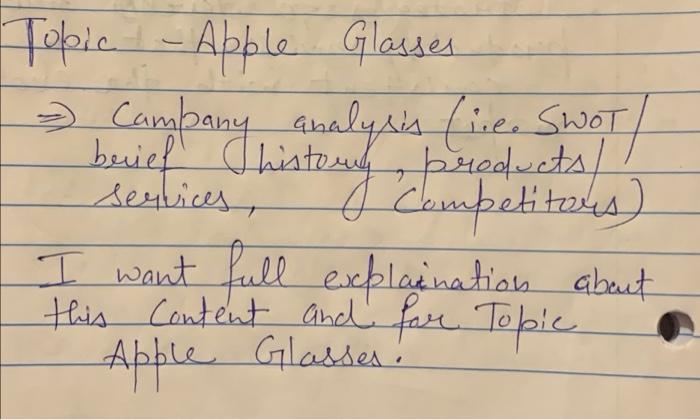 Topic - Apple Glasses
⇒ Company analysis (i.e. SWOT/
brief history, products/
services, Competitors)
I want full explaination about
this Content and for Topic
Apple Glasses.